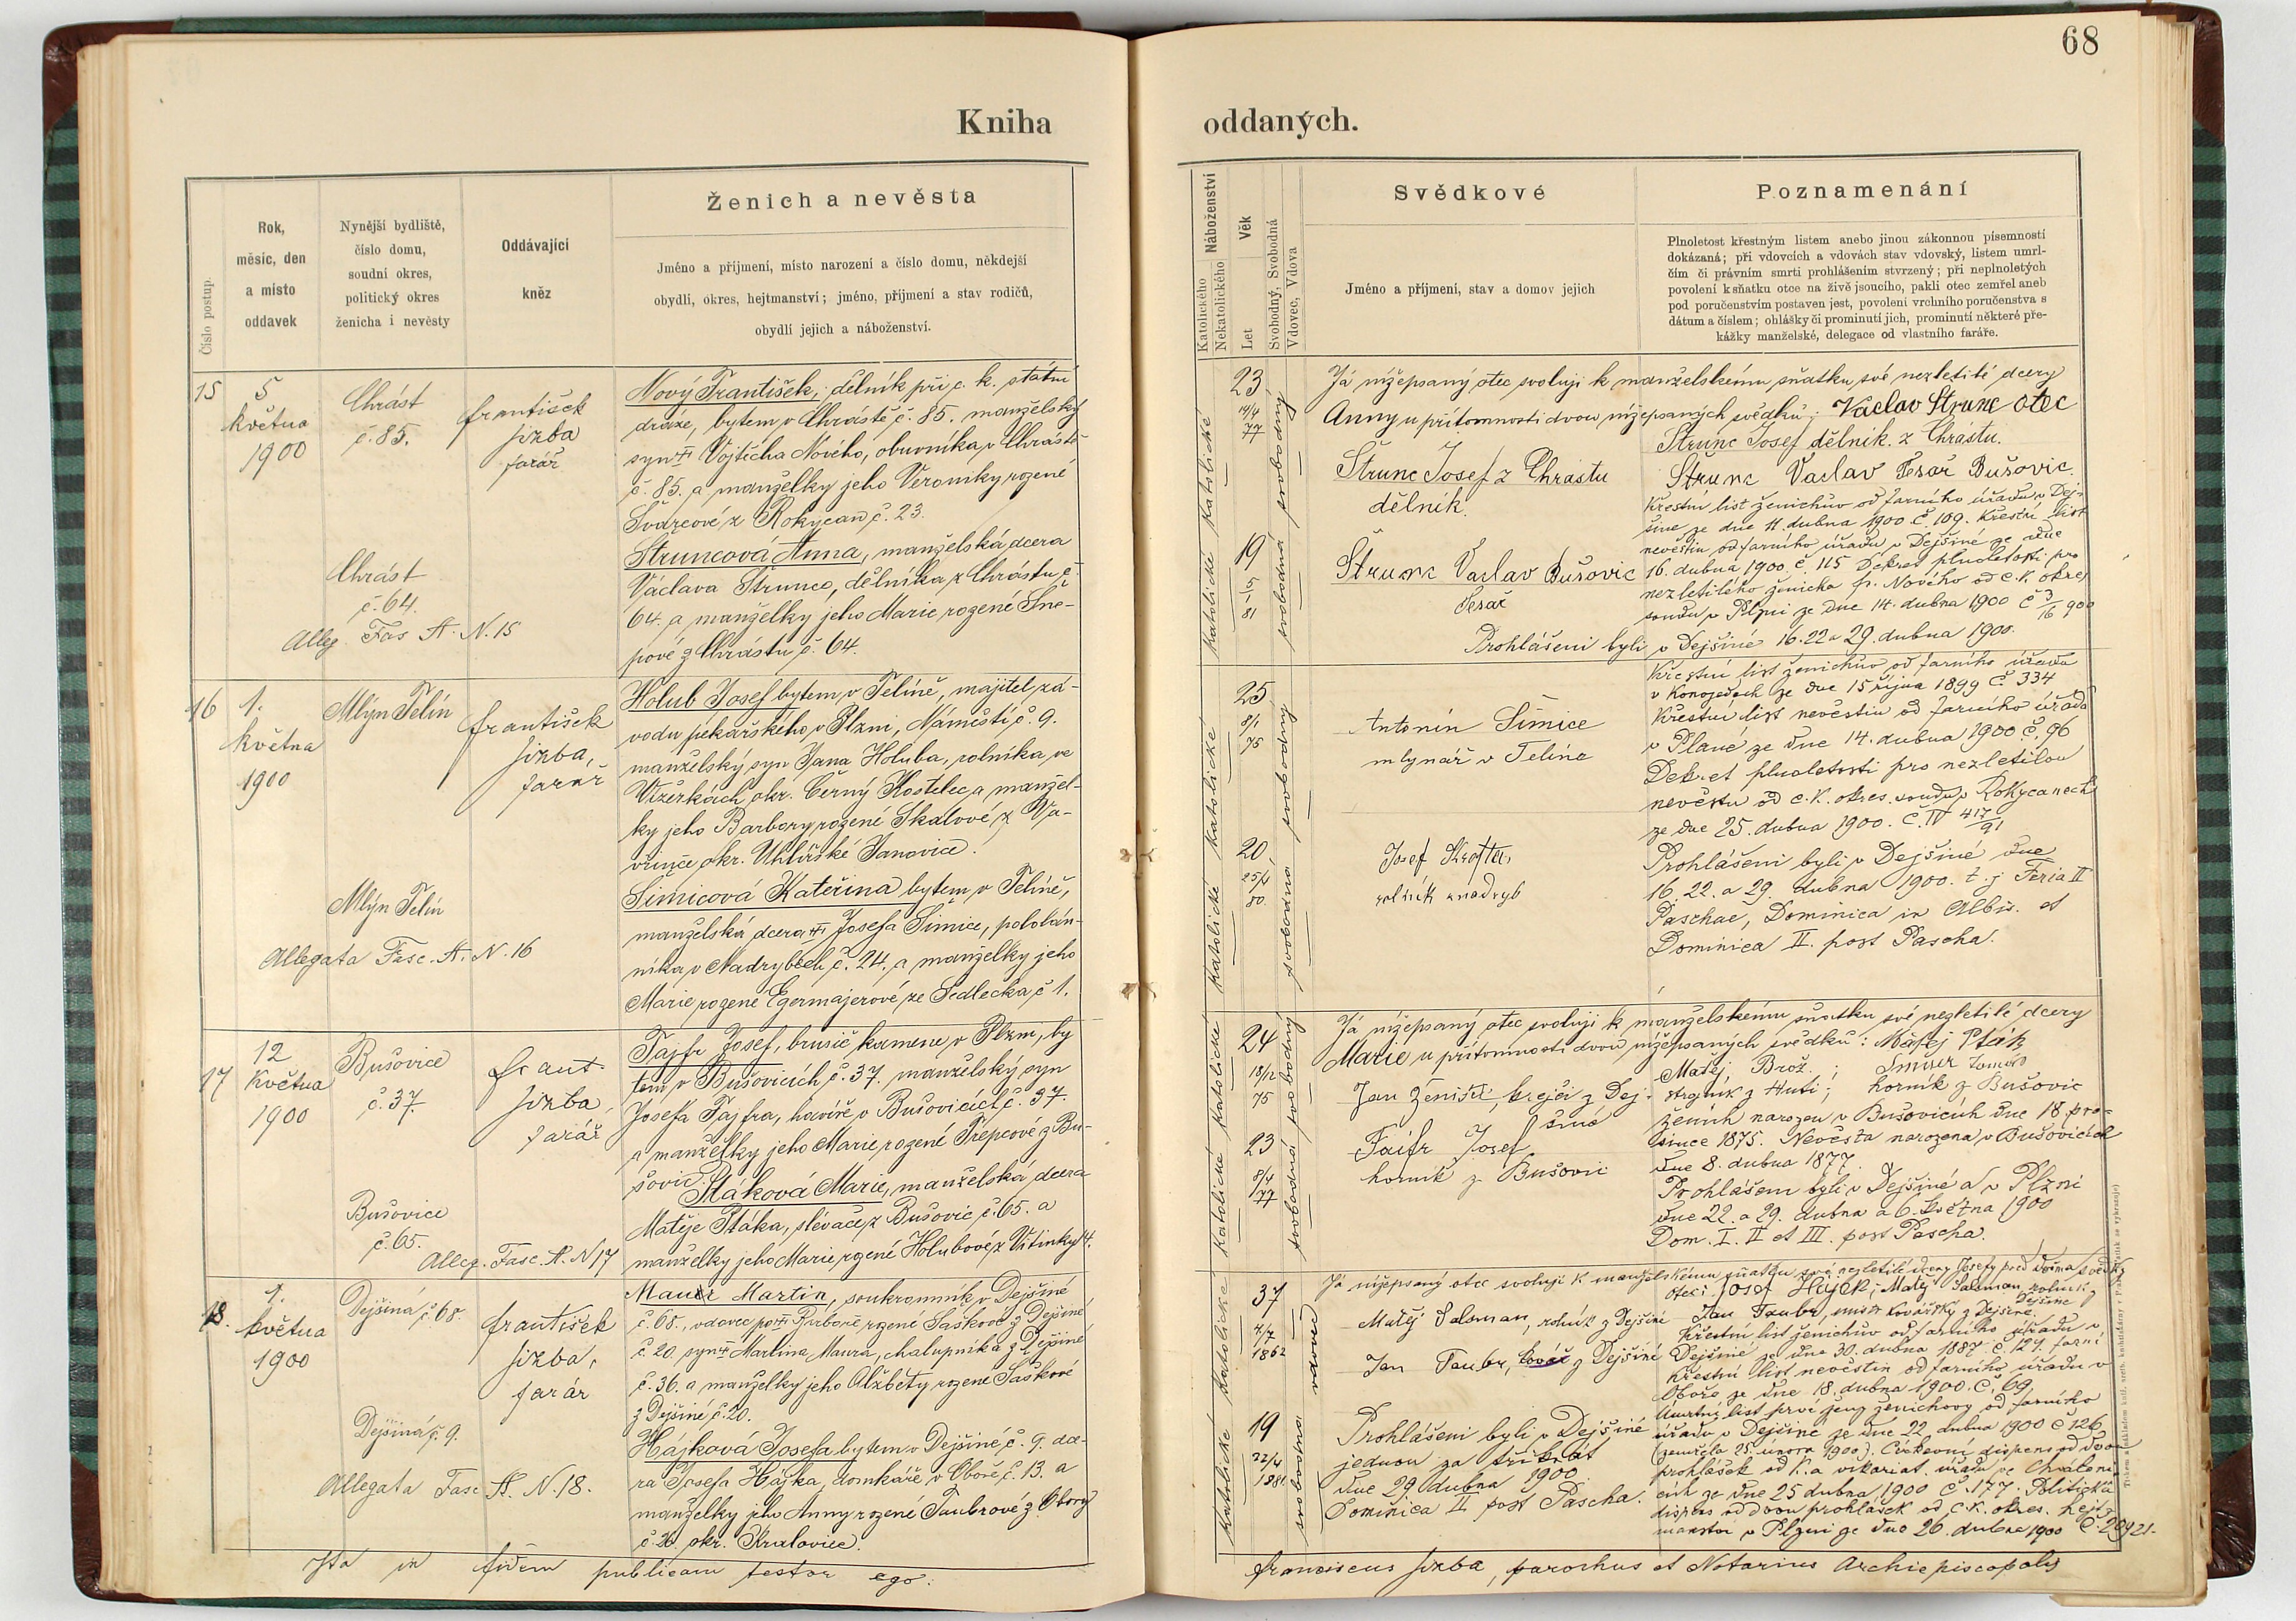 68
Kniha
oddaných.
Číslo postup.
Rok,
měsíc, den
a místo
oddavek
Nynější bydliště,
číslo domu,
soudní okres,
politický okres
ženicha i nevěsty
Oddávající
kněz
Ženich a nevěsta
Jméno a příjmení, místo narození a číslo domu, někdejší
obydlí, okres, hejtmanství; jméno, příjmení a stav rodičů,
obydlí jejich a náboženství.
15
5
května
1900
Chrást
č. 85.
František
farář
Nový František, dělník při c. k. státní
dráze, bytem v Chrástě č. 85. manželský
syn Vojtěcha Nového, obuvníka v Chrástě
č. 85. a manželky jeho Veroniky rozené
Švarcové z Rokycan č. 23.
Chrást
č. 64.
Alleg. Fas A. N. 15
Struncová Anna, manželská dcera
Václava Strunce, dělníka z Chrástu č.
64. a manželky jeho Marie rozené Šne-
pové z Chrástu č. 64.
16
1.
května
1900
Mlýn Telín
František
farář
Holub Josef bytem v Telíně, majitel zá-
vodu pekařského v Plzni, Náměstí č. 9.
manželský syn Jana Holuba, rolníka ve
Vižerkách okr. Černý Kostelec a manžel-
ky jeho Barbory rozené Skalové z Va-
vřince okr. Uhlířské Janovice.
Mlýn Telín
Allegata Fasc. A. N. 16
Šimicová Kateřina bytem v Telíně,
manželská dcera Josefa Šimice, pololán-
níka v Nadrybech č. 24. a manželky jeho
Marie rozené Egermajerové ze Sedlecka č 1.
17
12
května
1900
Bušovice
č. 37.
Frant.
farář
Tajfr Josef, brusič kamene v Plzni, by
tem v Bušovicích č. 37. manželský syn
Josefa Tajfra, havíře v Bušovicích č. 37.
a manželky jeho Marie rozené Třepcové z Bu-
šovic.
Bušovice
č. 65.
Alleg. Fasc. A. N 17
Ptáková Marie, manželská dcera
Matěje Ptáka, slévače z Bušovic č. 65. a
manželky jeho Marie rozené Holubové z Vitinky 14.
18.
1.
května
1900
Dejšina č. 68.
František
farář
Maur Martin, soukromník v Dejšině
č. 68., vdovec po Barboře rozené Šaškové z Dejšiné
č. 20 syn Martina Maura, chalupníka z Dejšiné
č. 36. a manželky jeho Alžběty rozené Šaškové
z Dejšiné č. 20.
Dejšiná č. 9.
Allegata Fasc A. N. 18.
Hájková Josefa bytem v Dejšiné č. 9. dce-
ra Josefa Hájka, domkáře v Oboře č. 13. a
manželky jeho Anny rozené Taubrové z Obory
č. okr. Kralovice.
Ita in fidem publicam testor ego:
Náboženství
Katolického
Nekatolického
Věk
Let
Svobodný, Svobodná
Vdovec, Vdova
Svědkové
Jméno a příjmení, stav a domov jejich
Poznamenání
Plnoletost křestným listem anebo jinou zákonnou písemností
dokázaná; při vdovcích a vdovách stav vdovský, listem umrl-
čím či právním smrti prohlášením stvrzený; při neplnoletých
povolení k sňatku otce na živě jsoucího, pakli otec zemřel aneb
pod poručenstvím postaven jest, povolení vrchního poručenstva s
dátum a číslem; ohlášky či prominutí jich, prominutí některé pře-
kážky manželské, delegace od vlastního faráře.
katolické
23
19/4
77
svobodný
Já nížepsaný otec svoluji k manželskému sňatku své nezletilé dcery
Anny u přítomnosti dvou nížepsaných svědků: Václav Štrunc otec
Štrunc Josef dělník z Chrástu.
Štrunc Josef z Chrástu
dělník.
Štrunc Vaclav Tesař Bušovic.
Křestní list ženichův od farního úřadu v Dej-
šině ze dne 11. dubna 1900 č. 109. Křestní list
nevěstin od farního úřadu v Dejšiné ze dne
16. dubna 1900. č. 115 Dekret plnoletosti pro
nezletilého ženicha Fr. Nového od c. k. okres
soudu v Plzni ze dne 14. dubna 1900 č 3/16 900
katolické
19
81
svobodná
Štrunc Vaclav Bušovic
Tesař
Prohlášeni byli v Dejšiné 16. 22 a 29. dubna 1900.
katolické
25
8/1
75
svobodný
Antonín Šimice
mlynář v Telíně
Křestní list ženichův od farního úřadu
v Konojedech ze dne 15 října 1899 č 334
Křestní list nevěstin od farního úřadu
v Plané ze dne 14. dubna 1900 č. 96
Dekret plnoletosti pro nezletilou
nevěstu od c. k. okres. soudu v Rokycanech
ze dne 25. dubna 1900. č. IV 417/91
katolické
20
25/4
80
svobodná
Josef Krofta,
rolník Nadryb
Prohlášeni byli v Dejšiné dne
16. 22. a 29. dubna 1900. t. j Feria II
Paschae, Dominica in Albis. et
Dominica II. post Pascha.
katolické
24
18/12
75
svobodný
Já nížepsaný otec svoluji k manželskému sňatku své nezletilé dcery
Marie u přítomnosti dvou nížepsaných svědků: Matěj Pták
Matěj Brož.;
strojník z Huti; horník z Bušovic
Jan Ženíšek, krejčí z Dej-
šiné
ženich narozen v Bušovicích dne 18. pro-
since 1875. Nevěsta narozena v Bušovicích
dne 8. dubna 1877.
katolické
23
8/4
77
svobodná
Faifr Josef
horník z Bušovic
Prohlášeni byli v Dejšiné a v Plzni
dne 22. a 29. dubna a 6. května 1900
Dom. I. II et III. post Pascha.
katolické
37
4/7
1862
vdovec
Já nížepsaný otec svoluji k manželskému sňatku své nezletilé dcery Josefy před dvěma svědky
otec: Josef Hajek; Matěj Salsman rolník z
Dejšiné
Matěj Salsman, rolník z Dejšiné
Jan Taubr, mistr kovářský z Dejšiné.
Jan Taubr, kovář z Dejšiné
Křestní list ženichův od farního úřadu v
Dejšiné ze dne 30. dubna 1887. č. 124. farní
Křestní list nevěstin od farního úřadu v
Oboře ze dne 18. dubna 1900. č. 69.
Úmrtný list prvé ženy ženichovy od farního
úřadu v Dejšiné ze dne 22 dubna 1900 č 126
(zemřela 25. února 1900). Církevní dispens od dvou
prohlášek od k. a vikariat. úřadu ve Chválení-
cích ze dne 25 dubna 1900 č. 177. Politická
dispens od dvou prohlášek od c. k. okres. hejt-
manství v Plzni ze dne 26. dubna 1900 č. 20921-
katolické
19
22/4
1881
svobodná
Prohlášeni byli v Dejšiné
jednou za třikrát
dne 29 dubna 1900
Dominica II post Pascha.
Franciscus parochus et Notarius Archiepiscopalis